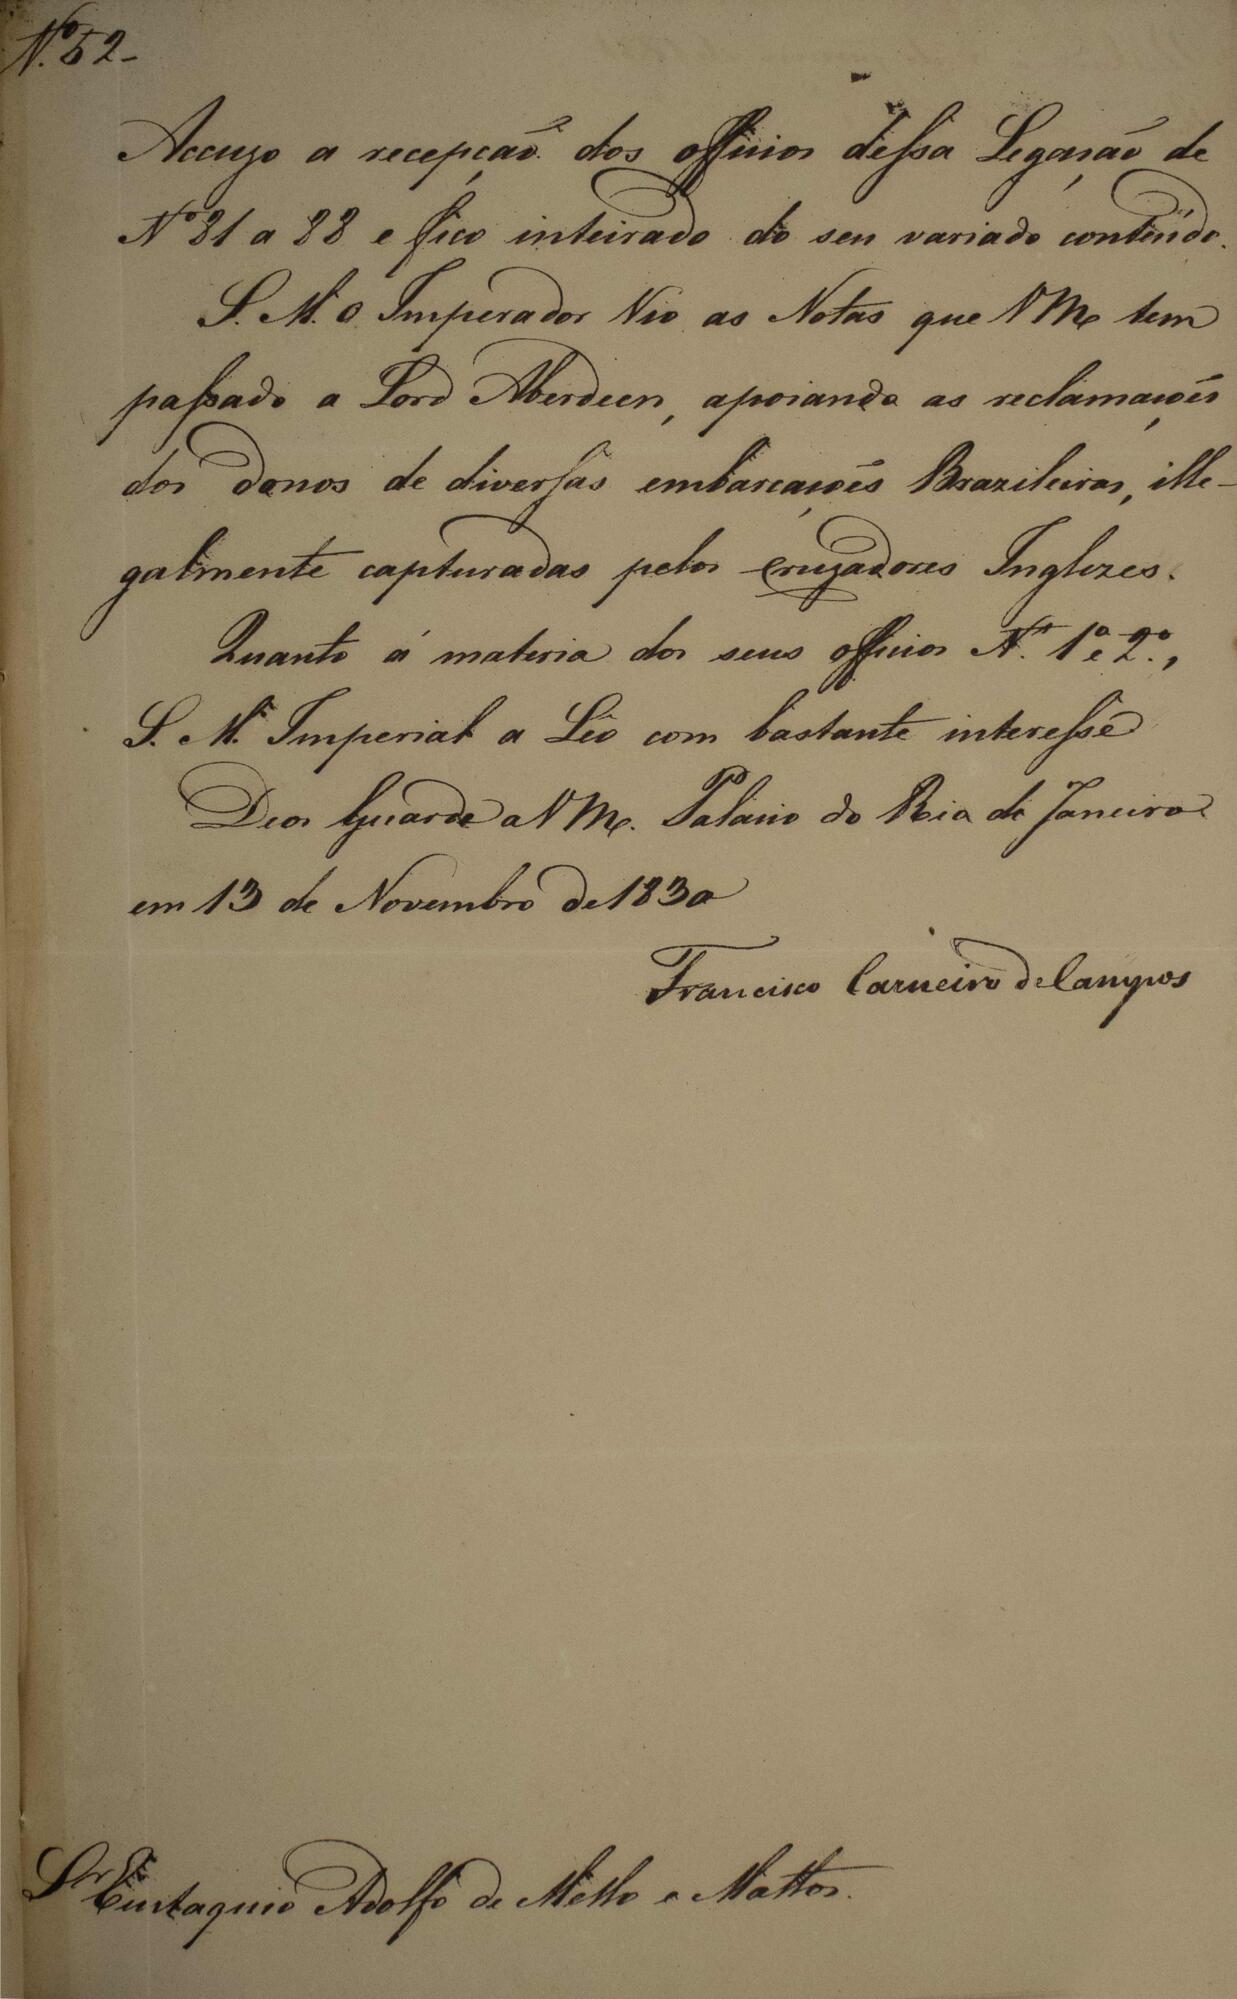 Nº 52-
Accuzo a recepção dos officios dessa Legação de
Nº 81 a 88 e fico inteirado do seu variado contéudo.
S. M. o Imperador Vio as Notas que VMe tem
passado a Lord Aberdeen, apoiando as reclamações
dos donos de diversas embarcações Brazileiras, ille-
galmente capturadas pelos cruzadores Inglezes.
Quanto á materia dos seus officios Nos. 1º e 2º.,
S. M. Imperial a Léo com bastante interesse
Deos Guarde a VMe. Palacio do Rio de Janeiro
em 13 de Novembro de 1830
Francisco Carneiro de Campos
Snr
Eustaquio Adolfo de Mello e Mattos.